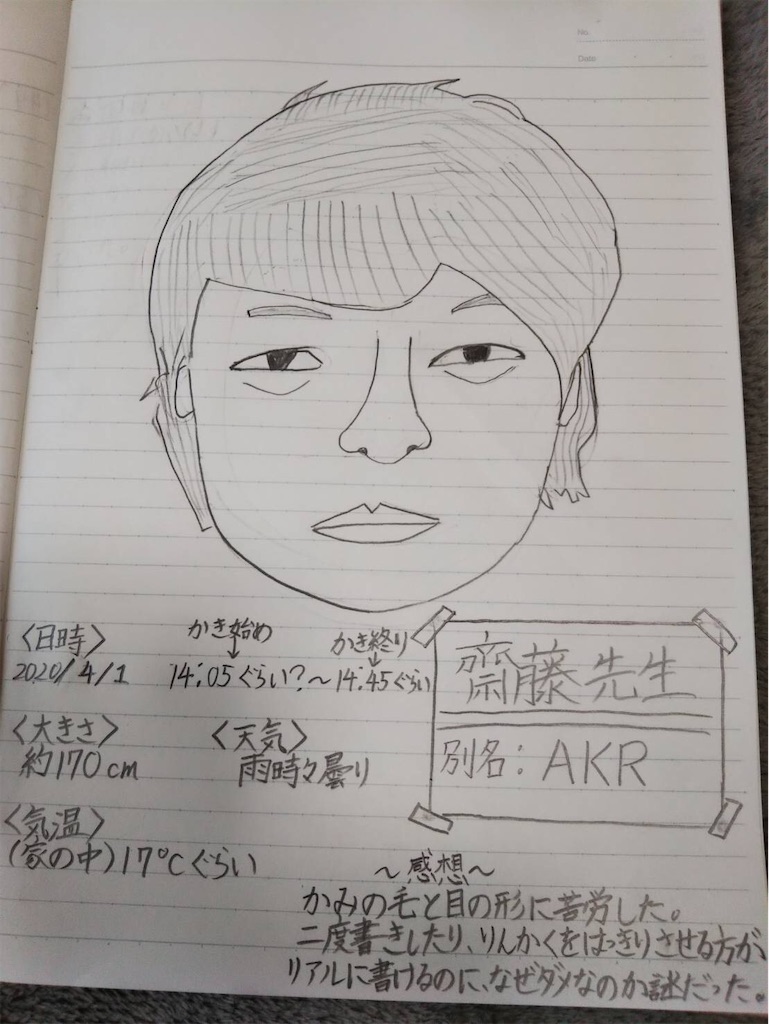 No.
Date
〈日時〉
かき始め
かき終り
2020/4/1 14:05ぐらい?〜14:45ぐらい
齋藤先生
別名:AKR
〈大きさ〉
約170cm
〈天気〉
雨時々曇り
〈気温〉
(家の中)17℃ぐらい
〜感想〜
かみの毛と目の形に苦労した。
二度書きしたり、りんかくをはっきりさせる方が、
リアルに書けるのに、なぜダメなのか謎だった。